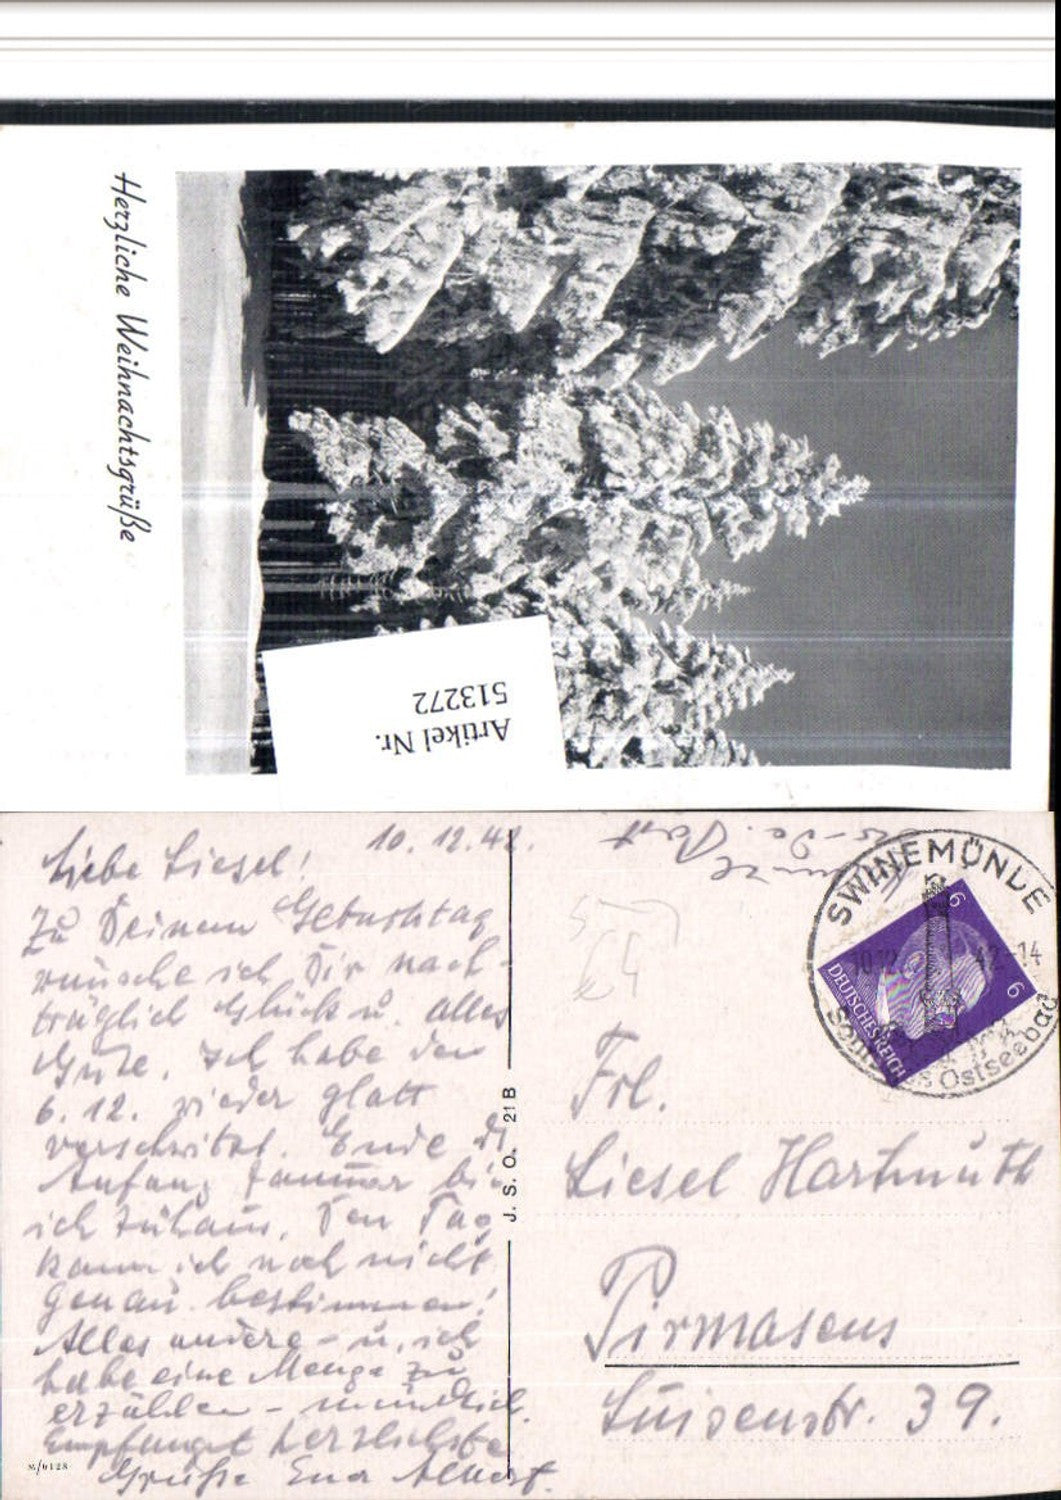 Herzliche Weihnachtsgrüße
Artikel Nr.
513272
10.12.42.
Liebe Liesel!
Zu Deinem Geburtstag
wünsche ich Dir nach-
träglich Glück u. alles
Gute. Ich habe den
6.12. wieder glatt
verschwitzt. Ende
Anfang Januar bin
ich zuhaus. Den Tag
kann ich noch nicht
genau bestimmen!
Alles andere - u. ich
habe eine Menge zu
erzählen - mündlich.
Empfanget herzlichste
Grüße Euer Albert.
M/0128
J. S. O. 21 B
SWINEMÜNDE
42-14
Ostseebad
6
6
DEUTSCHES REICH
Frl.
Liesel Hartmuth
Pirmasens
Luisenstr. 39.